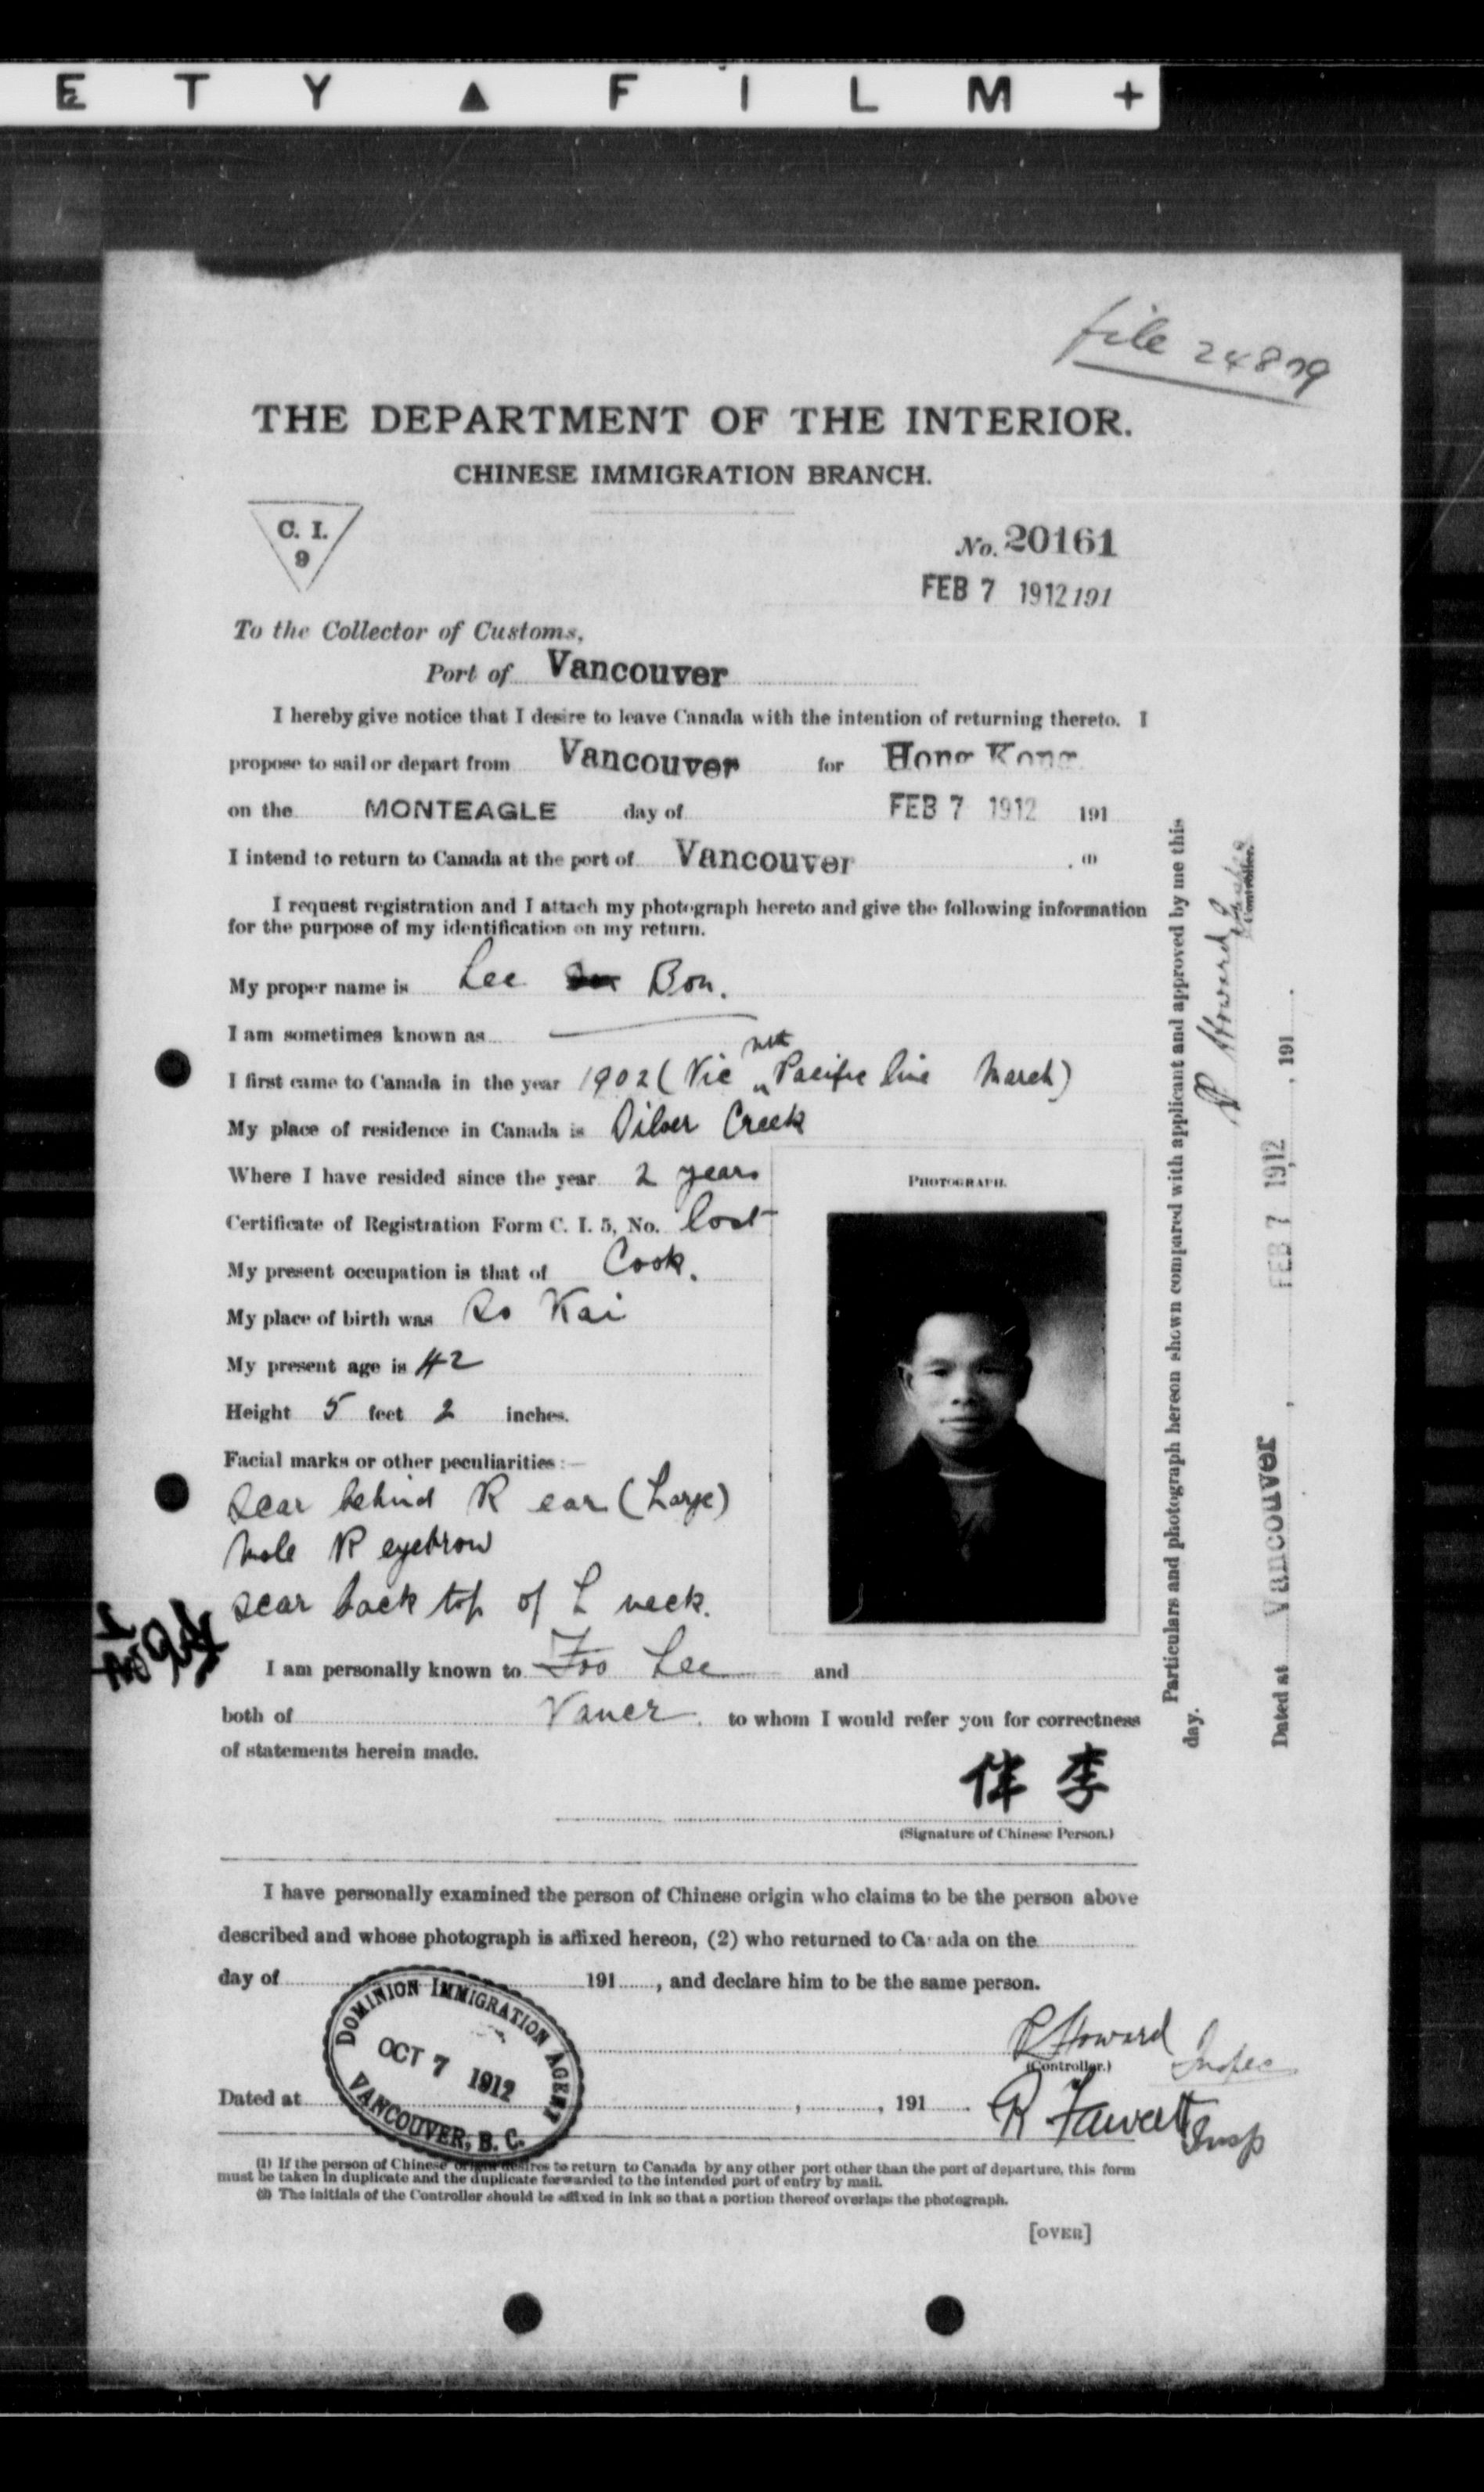 E T Y ▲ F I L M +
file 24879
THE DEPARTMENT OF THE INTERIOR.
CHINESE IMMIGRATION BRANCH.
C. I.
9
No. 20161
FEB 7 1912 191
To the Collector of Customs,
Port of Vancouver
I hereby give notice that I desire to leave Canada with the intention of returning thereto. I
propose to sail or depart from Vancouver for Hong Kong
on the MONTEAGLE day of FEB 7 1912 191
I intend to return to Canada at the port of Vancouver . (1)
I request registration and I attach my photograph hereto and give the following information
for the purpose of my identification on my return.
My proper name is Lee Bon.
I am sometimes known as
I first came to Canada in the year 1902 (Vic Pacific line March)
My place of residence in Canada is Silver Creek
Where I have resided since the year 2 years
Certificate of Registration Form C. I. 5, No. lost
My present occupation is that of Cook.
My place of birth was So Kai
My present age is 42
Height 5 feet 2 inches.
Facial marks or other peculiarities:—
Scar behind R ear (Large)
Mole R eyebrow
Scar back top of L neck.
PHOTOGRAPH.
I am personally known to Foo Lee and
both of Vancr. to whom I would refer you for correctness
of statements herein made.
伴 李
(Signature of Chinese Person.)
I have personally examined the person of Chinese origin who claims to be the person above
described and whose photograph is affixed hereon, (2) who returned to Canada on the
day of 191 , and declare him to be the same person.
R Howard Inspec
(Controller.)
DOMINION IMMIGRATION AGENT
OCT 7 1912
VANCOUVER, B. C.
Dated at , , 191 .
R Fawcett Insp
(1) If the person of Chinese origin desires to return to Canada by any other port other than the port of departure, this form
must be taken in duplicate and the duplicate forwarded to the intended port of entry by mail.
(2) The initials of the Controller should be affixed in ink so that a portion thereof overlaps the photograph.
[OVER]
Particulars and photograph hereon shown compared with applicant and approved by me this
day.
R Howard
Controller.
Dated at Vancouver , FEB 7 1912 , 191 .